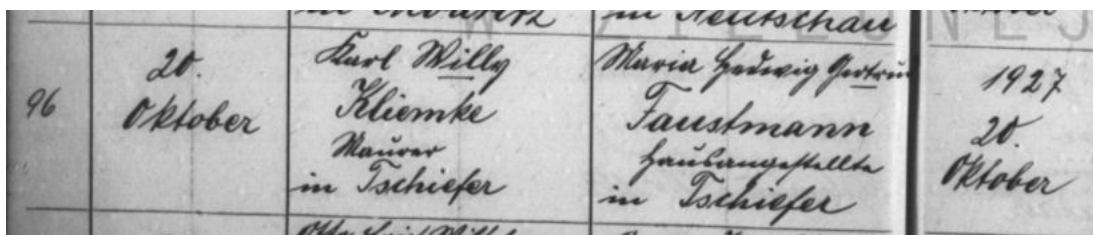 in Neutschau
96
20.
Oktober
Karl Willy
Kliemke
Maurer
in Tschiefer
Maria Hedwig Gertrud
Faustmann
Hausangestellte
in Tschiefer
1927
20.
Oktober